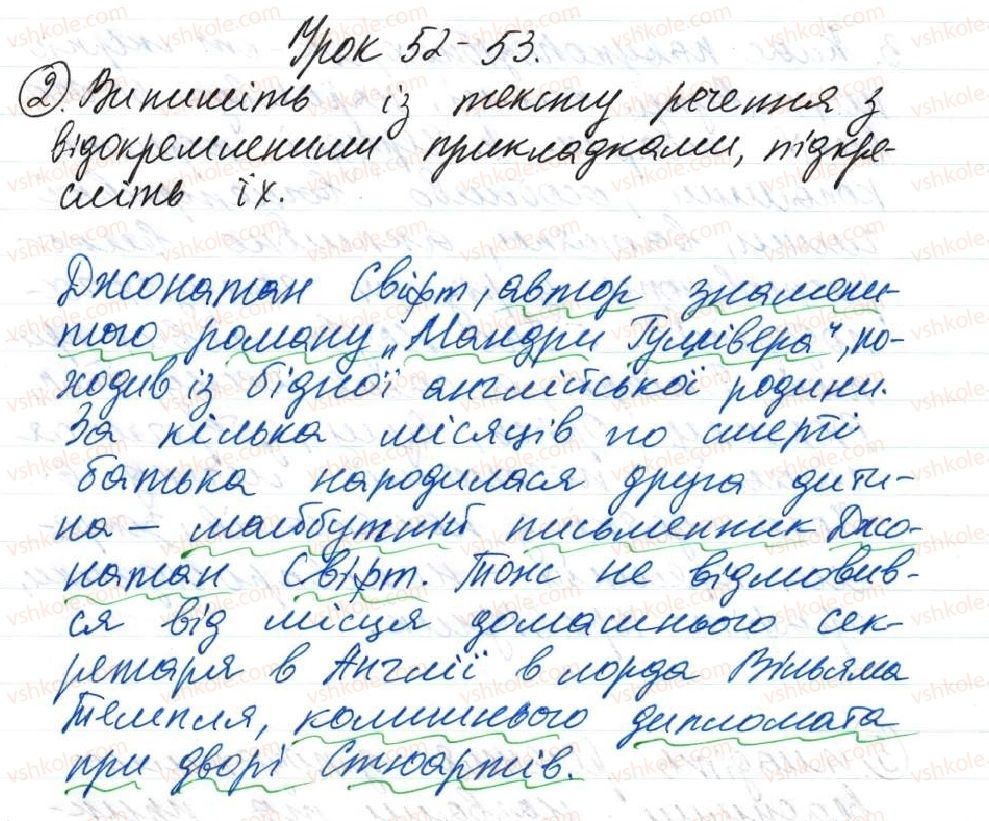 Урок 52-53.
2. Випишіть із тексту речення з
відокремленими прикладками, підкре-
сліть їх.
Джонатан Свіфт, автор знамени-
того роману „Мандри Гуллівера", по-
ходив із бідної англійської родини.
За кілька місяців по смерті
батька народилася друга дити-
на — майбутній письменник Джо-
натан Свіфт. Тож не відмовив-
ся від місця домашнього сек-
ретаря в Англії в лорда Вільяма
Темпля, колишнього дипломата
при дворі Стюартів.